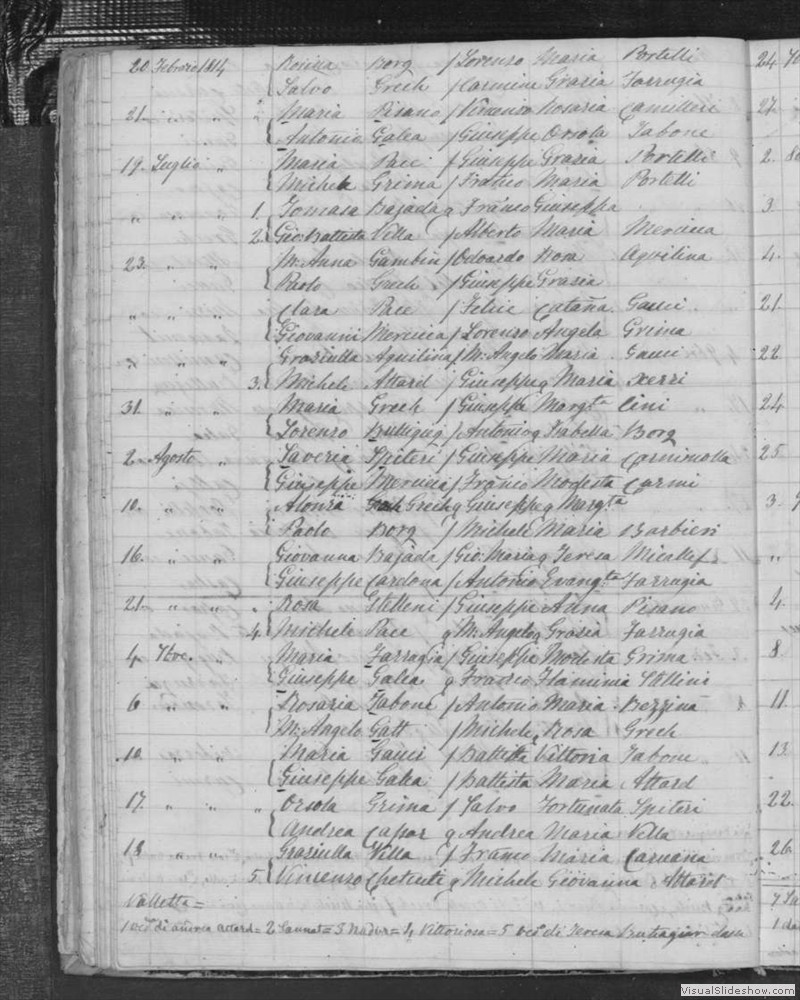 20 Febraro 1814 Rosina Borg f Lorenzo Maria Portelli
Salvo Grech f Carmina Grazia Farrugia
21. " " Maria Pisano f Vincenzo Rosaria Camilleri
Antonio Galea f Giuseppe Orsola Tabone
19. Luglio " Maria Pace f Giuseppe Grazia Portelli
Michele Grima f Franco Maria Portelli
" " " 1. Tomasa Bajada q Franco Giuseppa
2. Gio: Battista Vella f Alberto Maria Mercieca
23. " " Ma. Anna Gambin f Odoardo Rosa Aquilina
Paolo Grech f Giuseppe Grazia
" " " Clara Pace f Felice Catañа Gauci
Giovanni Mercieca f Lorenzo Angela Grima
" " " Graziulla Aquilina f M. Angelo Maria Gauci
3. Michele Attard f Giuseppe q Maria Xerri
31. " " Maria Grech f Giuseppe Margta Cini
Lorenzo Buttigieg f Antonio q Isabella Borg
2. Agosto " Saveria Spiteri f Giuseppe Maria
Giuseppe Mercieca f Franco Modesta
10. " " Alonza Grech q Giuseppe q Margta
Paolo Borg f Michele Maria Barbieri
16. " " Giovanna Bajada f Gio: Maria q Teresa Micallef
Giuseppe Cardona f Antonio Evangta Farrugia
21. " " Rosa Stellini f Giuseppe Anna Pisano
4. Michele Pace q M. Angelo q Grazia Farrugia
4. 7bre. " Maria Farrugia f Giuseppe Modesta Grima
Giuseppe Galea q Franco Flaminia Stellini
6 " " Rosaria Tabone f Antonio Maria Bezzina
M. Angelo Gatt f Michele Rosa Grech
10. " " Maria Gauci f Battista Vittoria Tabone
Giuseppe Galea f Battista Maria Attard
17. " " " Orsola Grima f Salvo Fortunata Spiteri
Andrea Caspar q Andrea Maria Vella
18 " " Graziulla Vella f Franco Maria Caruana
5. Vincenzo Chetcuti q Michele Giovanna Attard
Valletta =
1 ved. di Attard = 2 Sannat = 3 Nadur = 4 Vittoriosa = 5 ved. di Teresa
24
27
2.
3.
4.
21
22
24
25
3.
"
4
8
11.
13
22.
26
VisualSlideshow.com